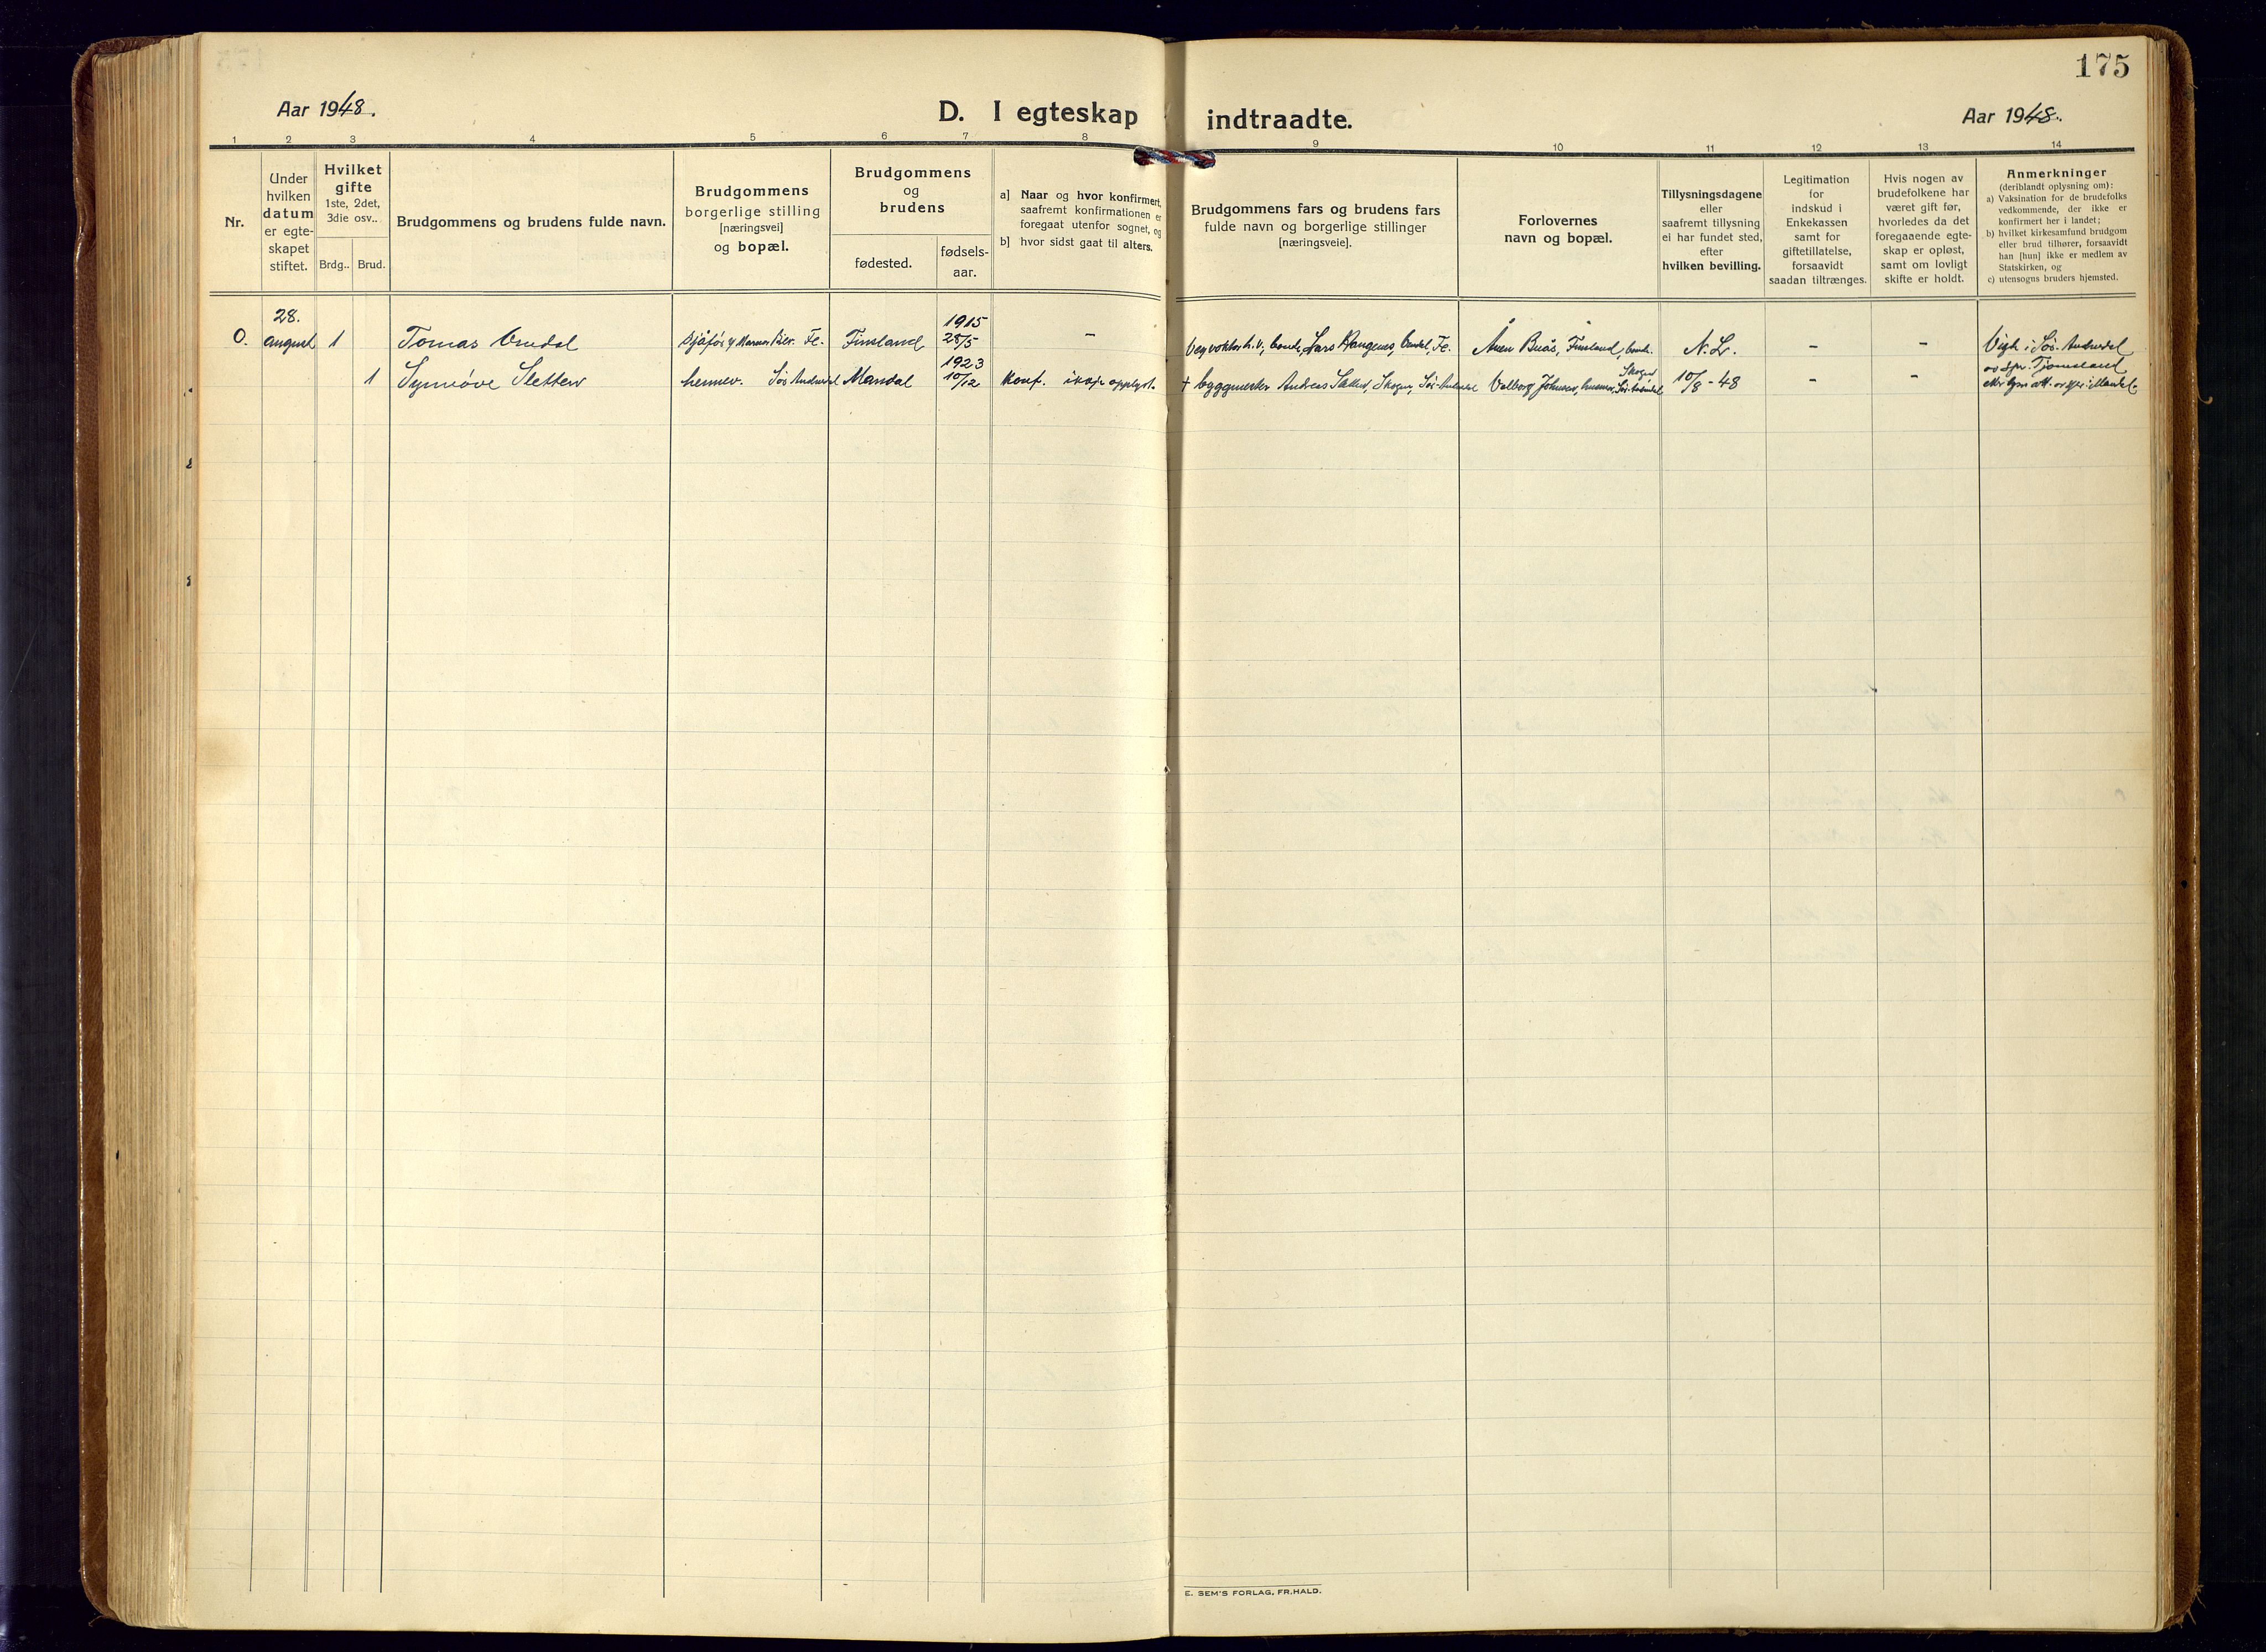 175
Aar 1948.
D. I egteskap indtraadte.
Aar 1948.
1 2 3 4 5 6 7 8 9 10 11 12 13 14
Nr.
Under
hvilken
datum
er egte-
skapet
stiftet.
Hvilket
gifte
1ste, 2det,
3die osv..
Brdg.. Brud.
Brudgommens og brudens fulde navn.
Brudgommens
borgerlige stilling
[næringsvei]
og bopæl.
Brudgommens
og
brudens
fødested.
fødsels-
aar.
a] Naar og hvor konfirmert,
saafremt konfirmationen er
foregaat utenfor sognet, og
b] hvor sidst gaat til alters.
Brudgommens fars og brudens fars
fulde navn og borgerlige stillinger
[næringsveie].
Forlovernes
navn og bopæl.
Tillysningsdagene
eller
saafremt tillysning
ei har fundet sted,
efter
hvilken bevilling.
Legitimation
for
indskud i
Enkekassen
samt for
giftetillatelse,
forsaavidt
saadan tiltrænges.
Hvis nogen av
brudefolkene har
været gift før,
hvorledes da det
foregaaende egte-
skap er opløst,
samt om lovligt
skifte er holdt.
Anmerkninger
(deriblandt oplysning om):
a) Vaksination for de brudefolks
vedkommende, der ikke er
konfirmert her i landet;
b) hvilket kirkesamfund brudgom
eller brud tilhører, forsaavidt
han [hun] ikke er medlem av
Statskirken, og
c) utensogns bruders hjemsted.
28.
1915
0. august 1 Tomas Sjåfør Fe. Finsland 25/5 – Lars Haugenes, Fe. Buås, Finsland, N.L. – – i Sør-Audnedal
1923
1 Synnøve Sletten Sør Audnedal Mandal 10/12 Konf. ikkje opplyst. + byggmester Andreas Skogen, Valborg Johnsen, 10/8 - 48 – –
Skogen
E. SEM'S FORLAG, FR.HALD.